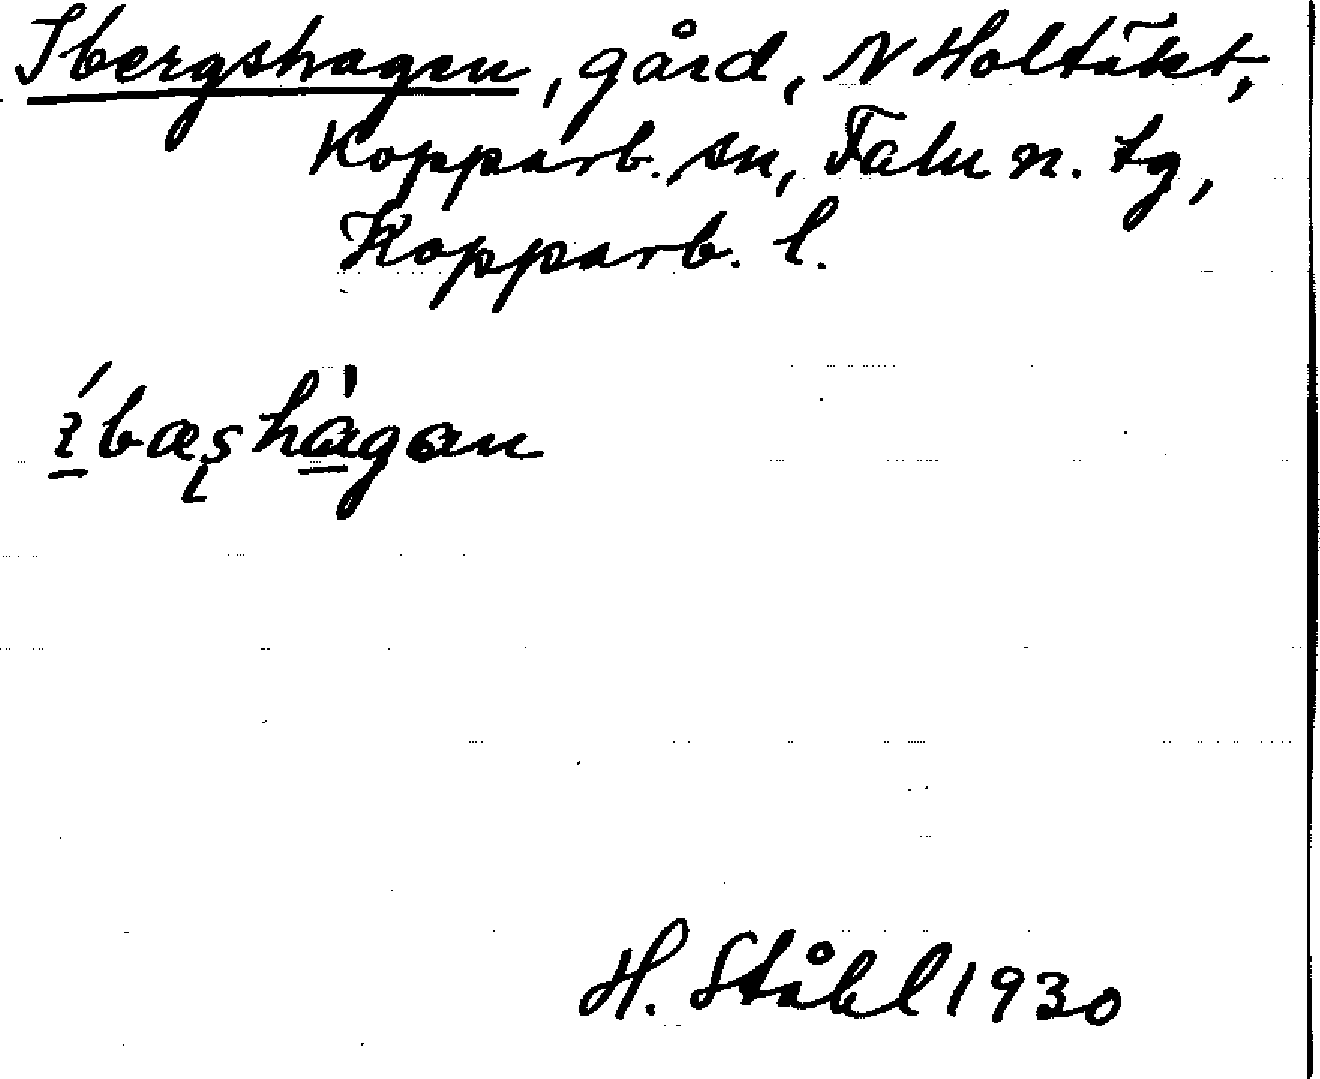 Ibergshagen, gård, N Holtäkt,
Kopparb. sn, Falu n. tg,
Kopparb. l.
í̱bæʂhà̱gan
H. Ståhl 1930